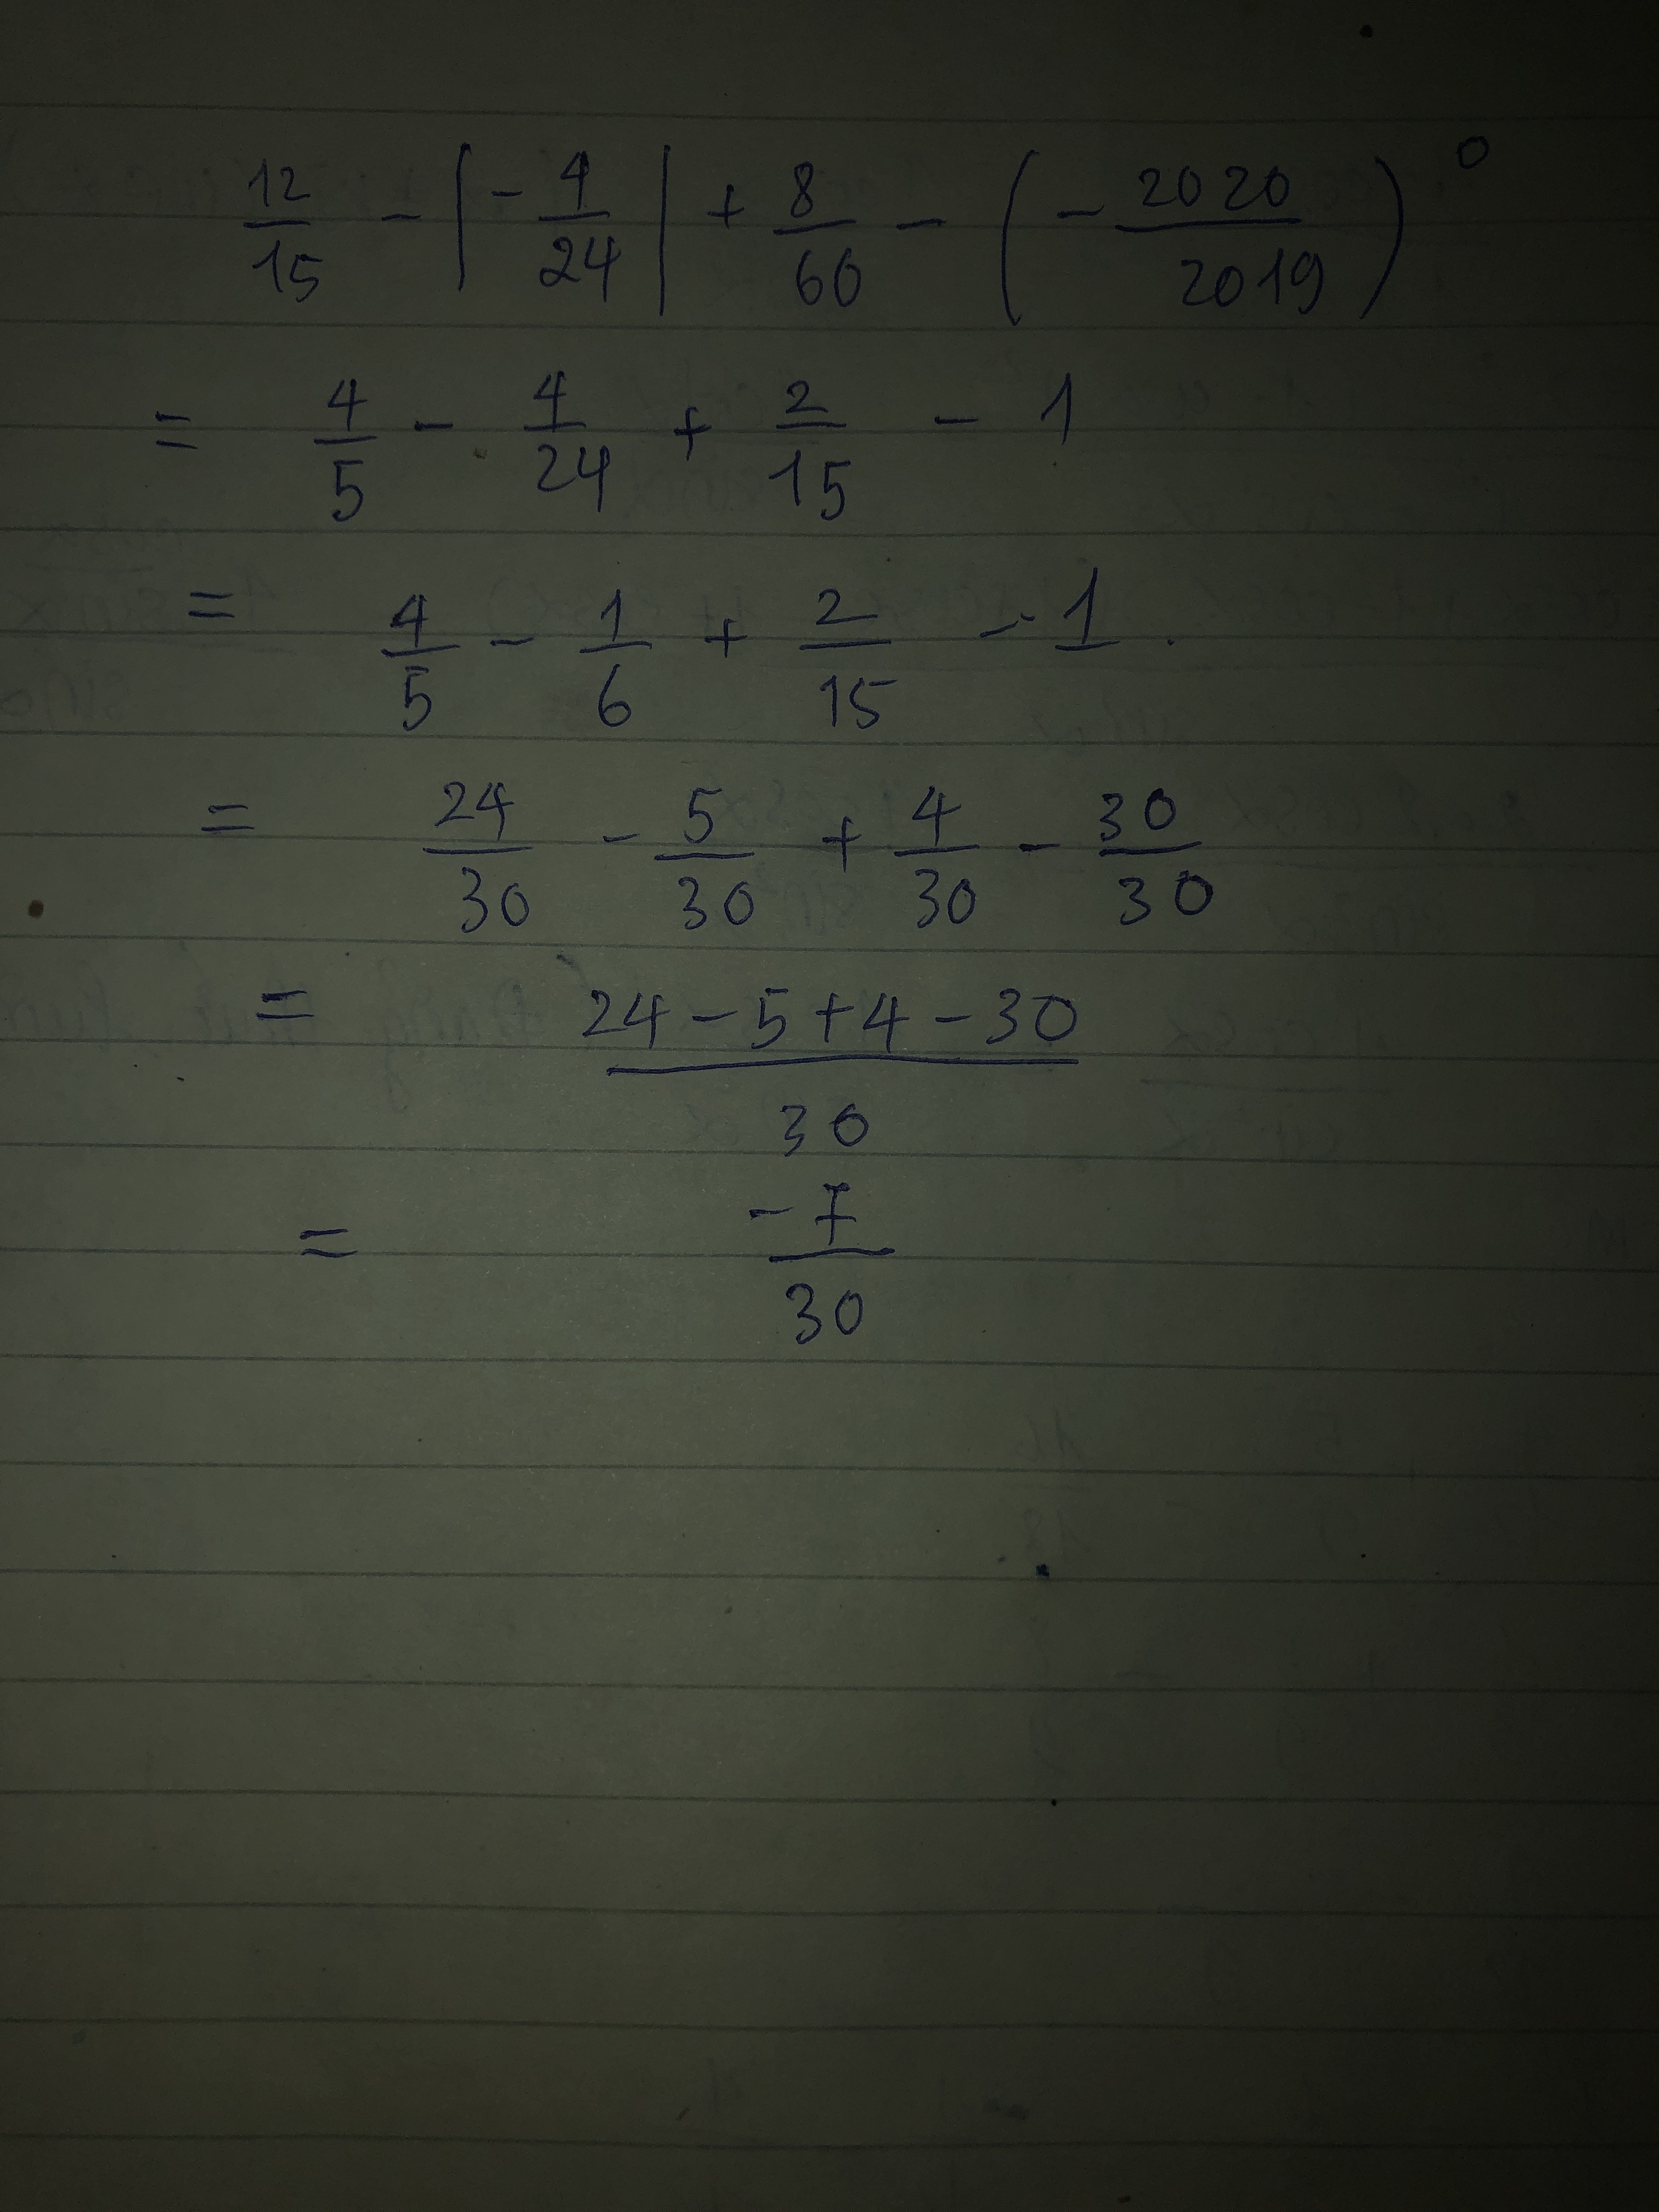 12/15 - |-4/24| + 8/60 - (-2020/2019)^0
= 4/5 - 4/24 + 2/15 - 1
= 4/5 - 1/6 + 2/15 - 1.
= 24/30 - 5/30 + 4/30 - 30/30
= (24 - 5 + 4 - 30)/30
= -7/30